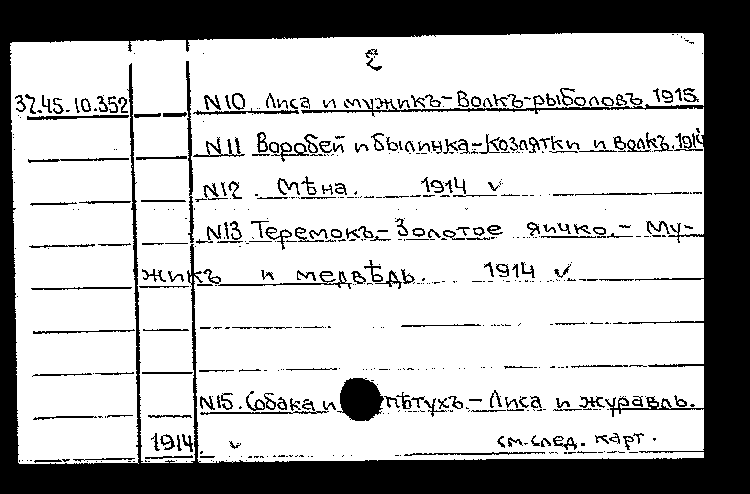 2
37.45.10.352 N10. Лиса и мужикъ-Волкъ-рыболовъ. 1915.
N11 Воробей и былинка-Козлятки и волкъ. 1914
N12. Мѣна. 1914 v
N13 Теремокъ.- Золотое яичко.- Му-
жикъ и медвѣдь. 1914 v
N15. Собака и пѣтухъ - Лиса и журавль.
1914. v см. след. карт.